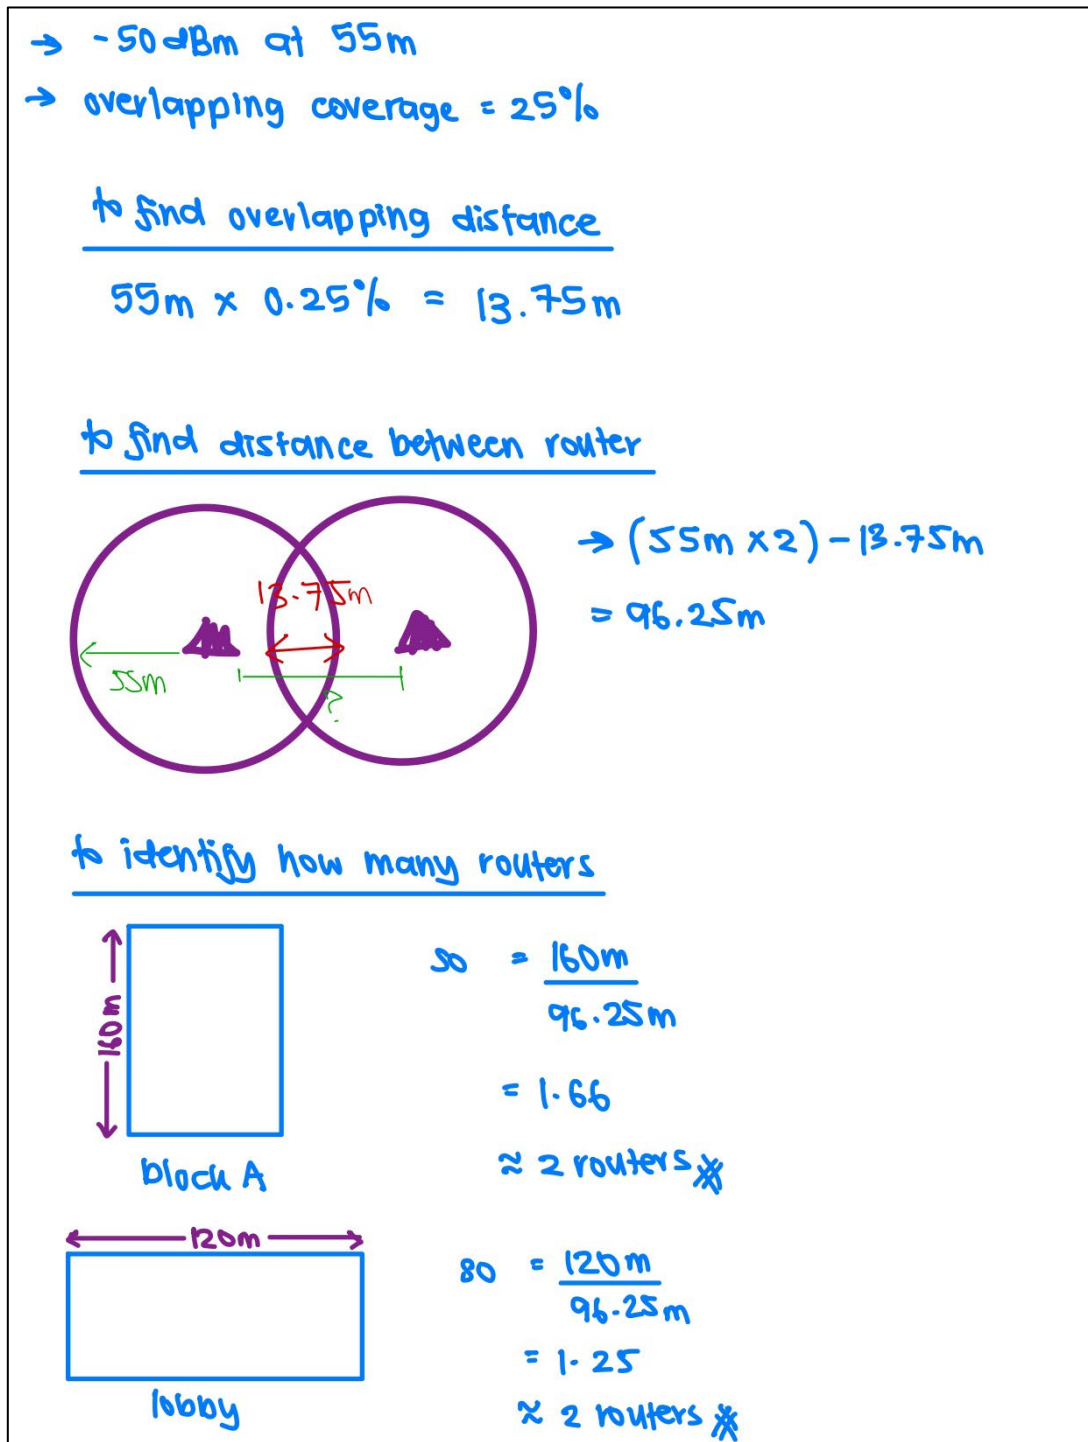 → -50 dBm at 55m
→ overlapping coverage = 25%
to find overlapping distance
55m × 0.25% = 13.75m
to find distance between router
13.75m
55m
?
→ (55m × 2) - 13.75m
= 96.25m
to identify how many routers
160m
block A
so = 160m
96.25m
= 1.66
≈ 2 routers
120m
lobby
so = 120m
96.25m
= 1.25
≈ 2 routers